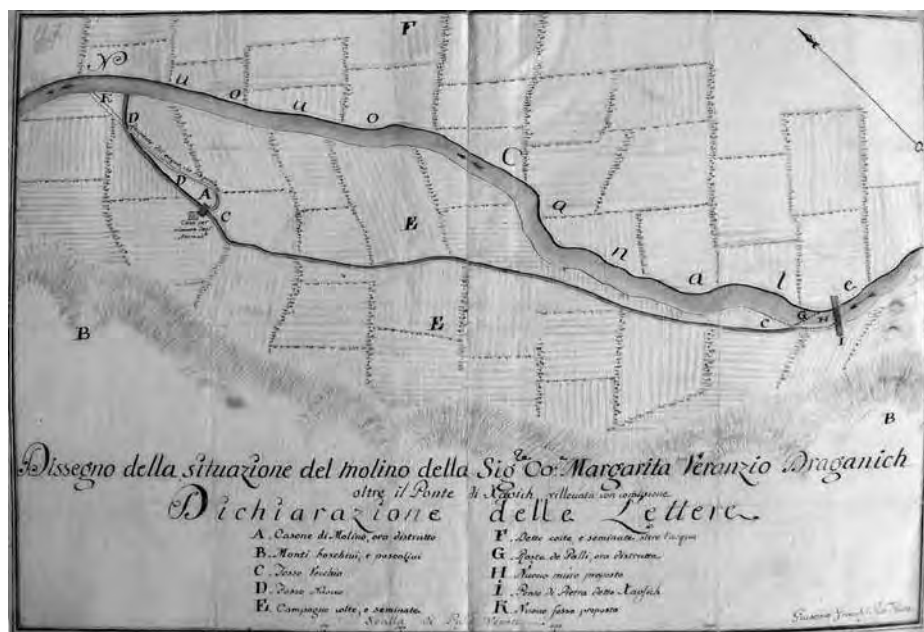 N u o u o C a n a l e
F
K
D
D
A
C
E
E
B
C
G
H
I
B
Dissegno della situazione del Molino della Sig.ra Co: Margarita Veranzio Draganich
oltre il Ponte di Xapsich rillevata con
Dichiarazione delle Lettere
A Casone di Molino, ora distrutto
B Monti boschivi, e pascolivi
C Fosso Vecchio
D Fosso Nuovo
E Campagne colte, e seminate
F Dette colte, e seminate oltre l'acqua
G Posta de Palli, ora distrutta
H Nuovo muro proposto
I Ponte di Pietra detto Xapsich
K Nuovo fosso proposto
Scalla di